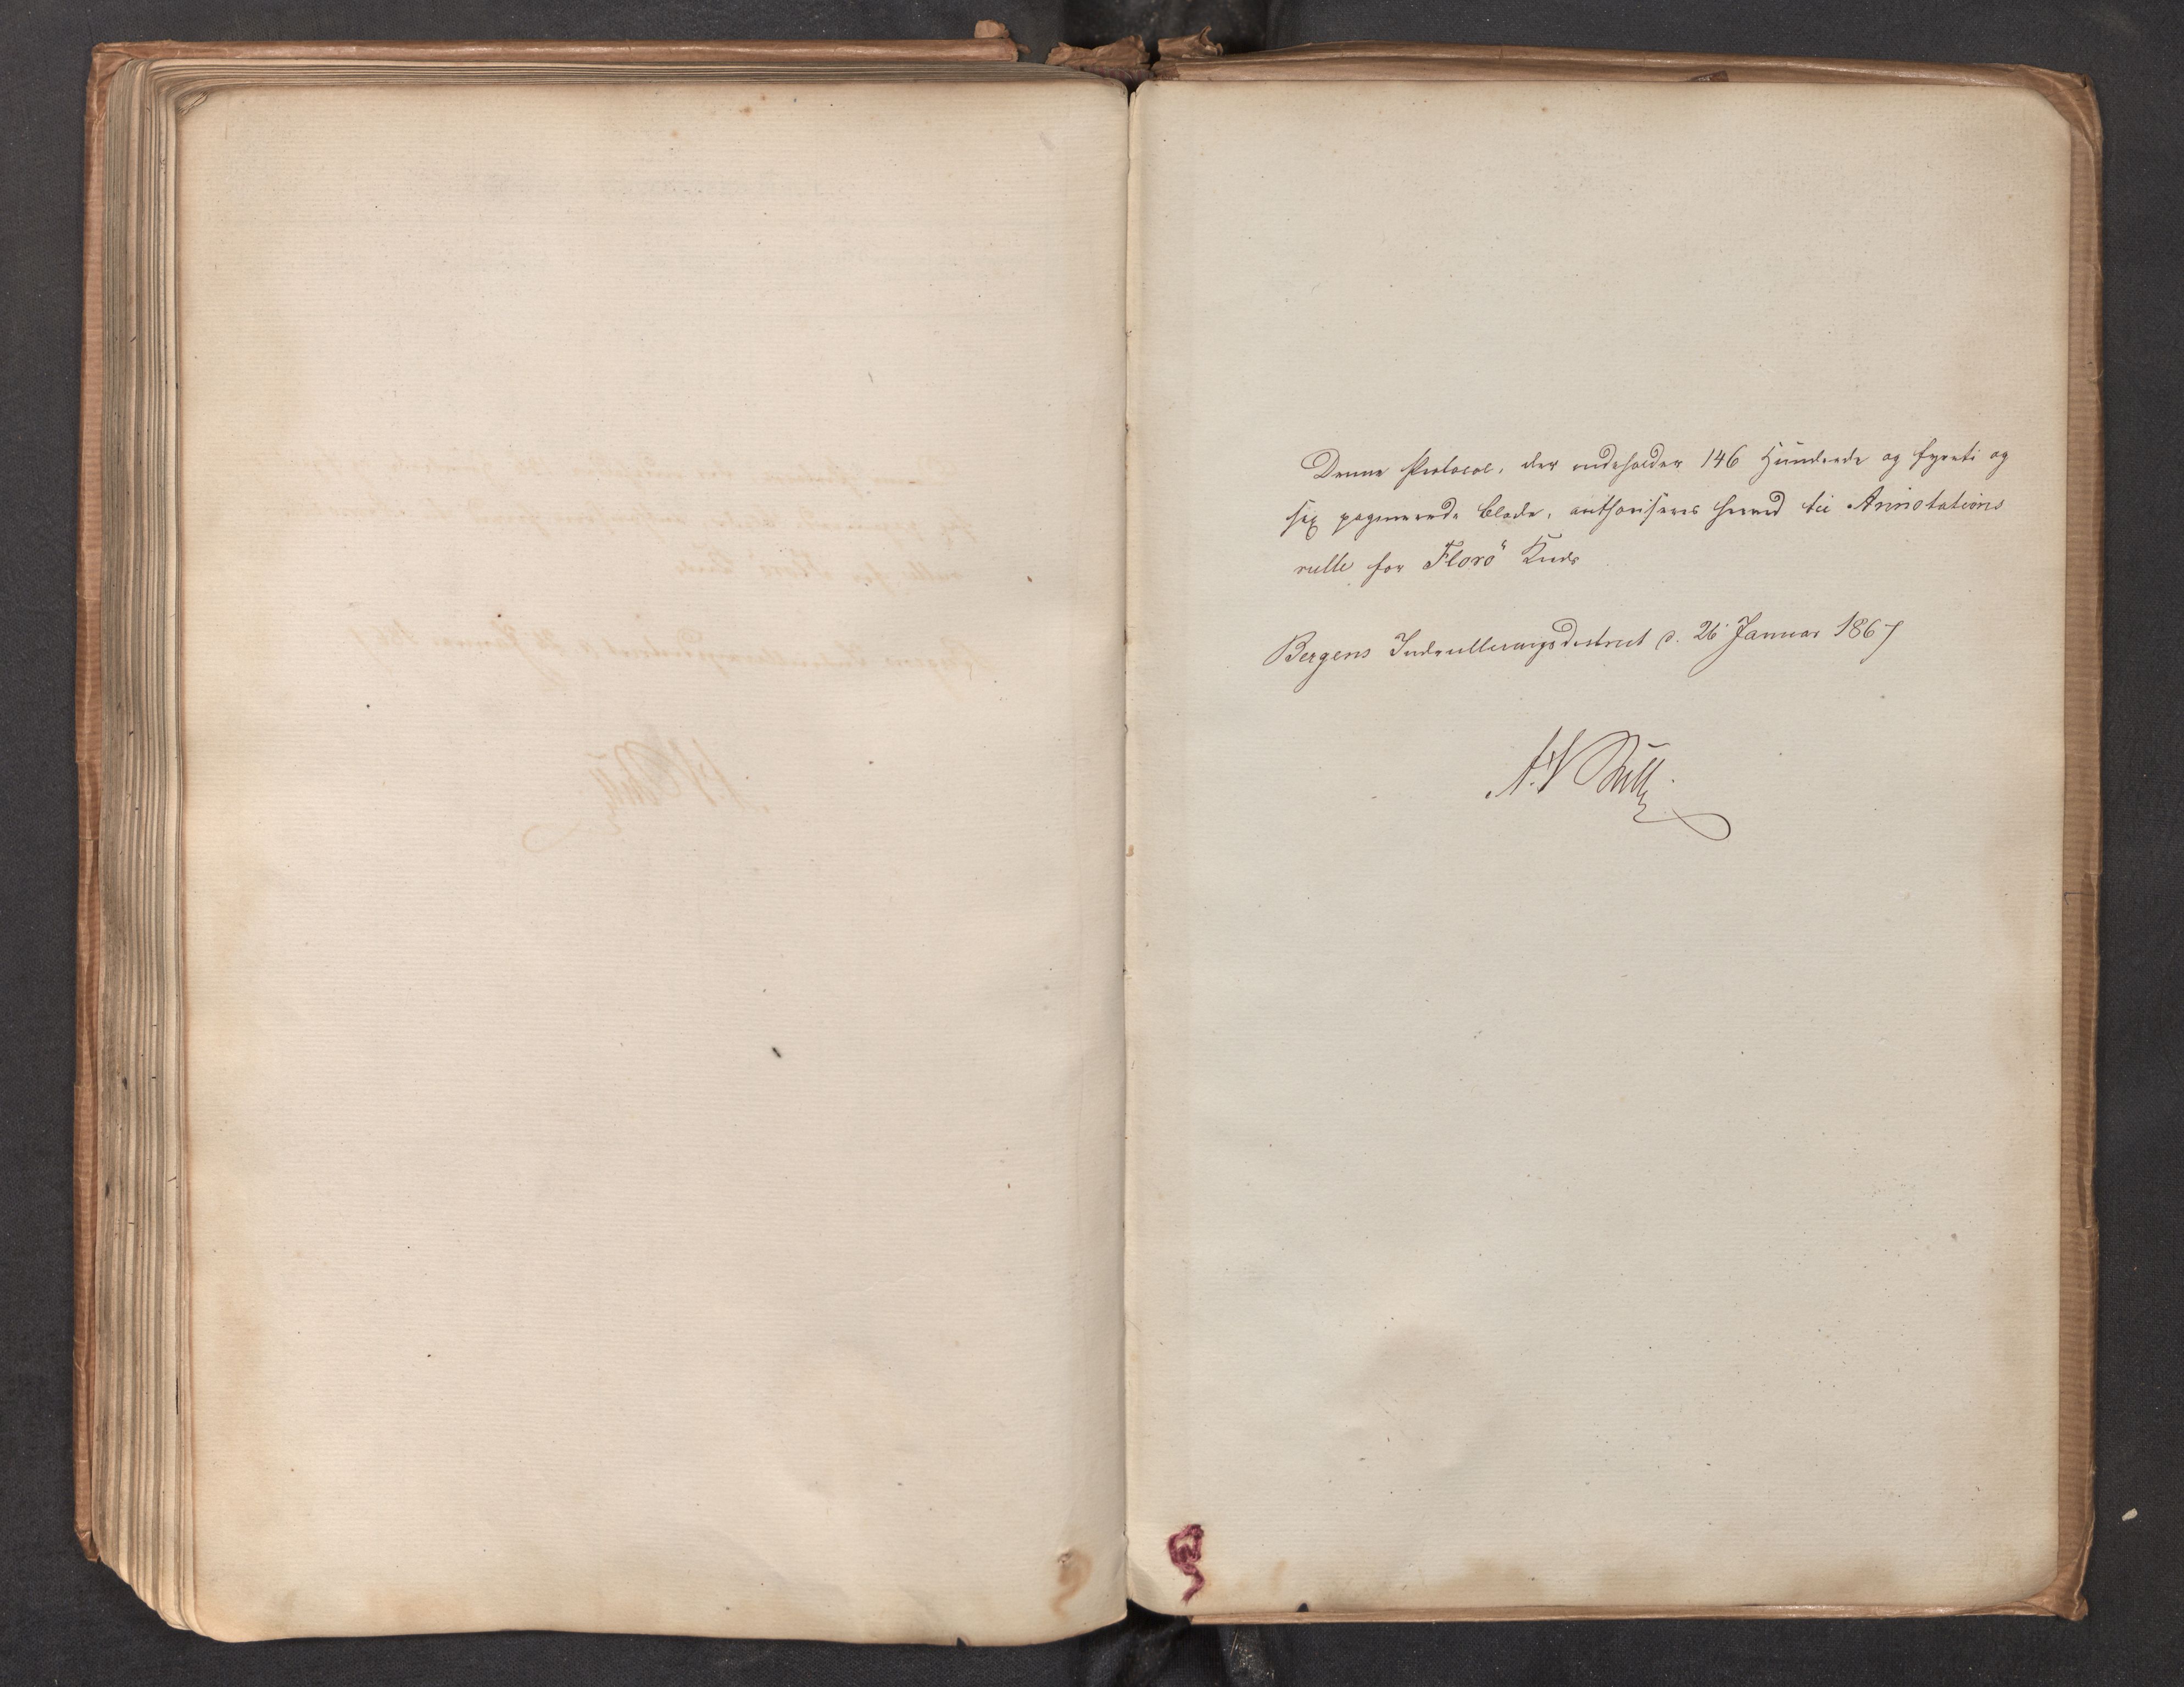 Denne Protocol, der indeholder 146 Hundrede og fyreti og
sex paginerede Blade, authoriseres herved til Annotations
rulle for Florö Kreds
Bergens Indrulleringsdistrict d. 26 Januar 1867